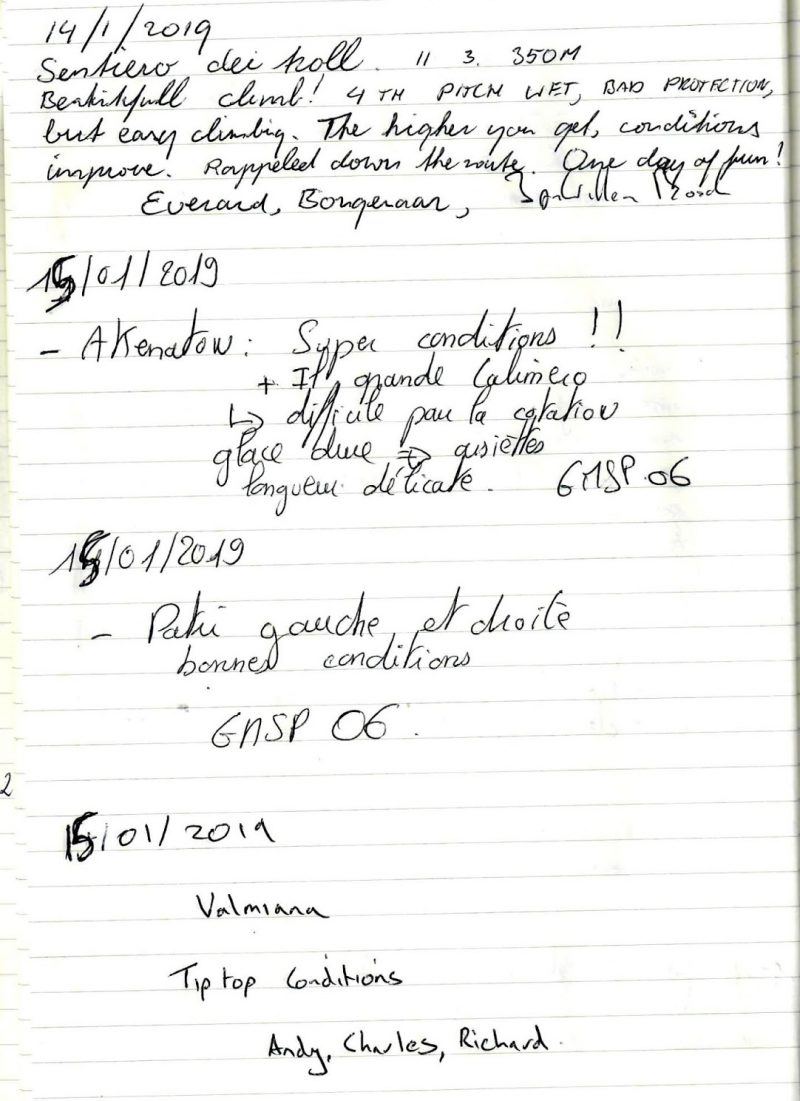 14/1/2019
Sentiero dei troll. II 3. 350M
Beatifull climb! 4TH PITCH WET, BAD PROTECTION,
but easy climbing. The higher you get, conditions
improve. Rappeled down the route. One day of fun!
Everard, Bongenaar,
15/01/2019
- AKenatow: Super conditions !!
+ Il grande Calimero
↳ difficile pour la cotation
glace dure => assiettes
longueur délicate. GMSP 06
15/01/2019
- Patri gauche et droite
bonnes conditions
GMSP 06.
2
15/01/2019
Valmiana
Tip top Conditions
Andy, Charles, Richard.